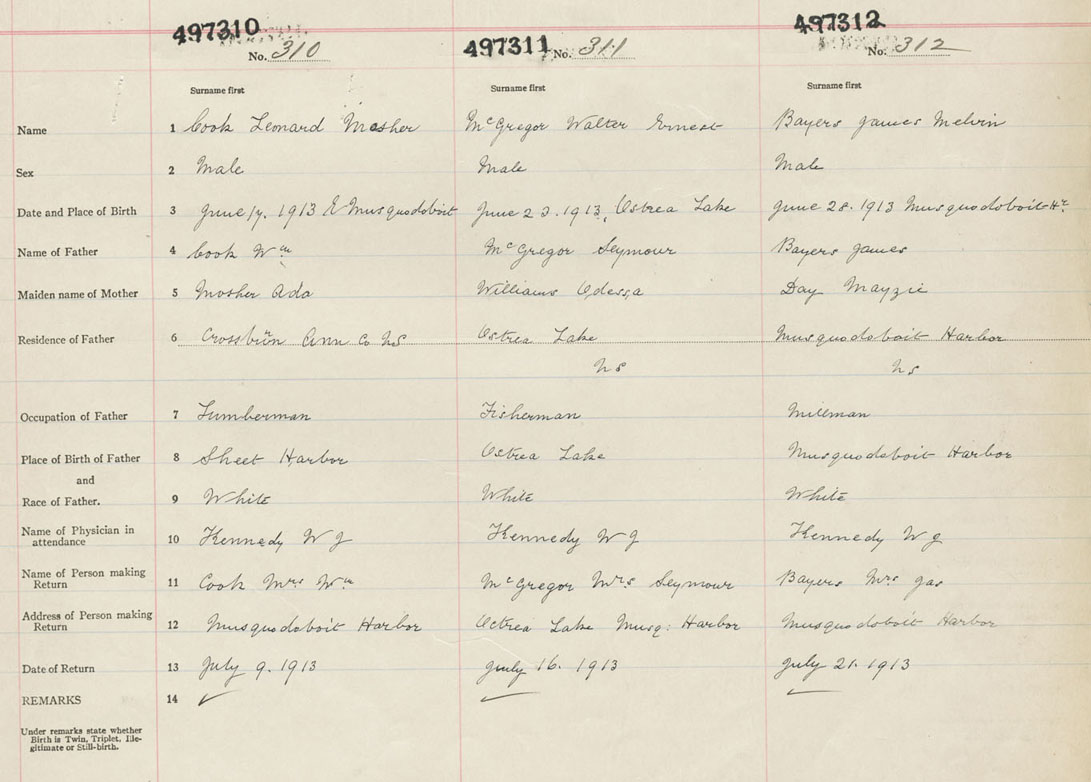 497310 497311 497312
No. 310 No. 311 No. 312
Surname first Surname first Surname first
Name 1 Cook Leonard Mosher McGregor Walter Ernest Bayers James Melvin
Sex 2 Male Male Male
Date and Place of Birth 3 June 17. 1913 E Musquodoboit June 23. 1913, Ostrea Lake June 28. 1913 Musquodoboit Hr.
Name of Father 4 Cook Wm McGregor Seymour Bayers James
Maiden name of Mother 5 Mosher Ada Williams Odessa Day Mayzie
Residence of Father 6 Ann Co NS Ostrea Lake Musquodoboit Harbor
NS NS
Occupation of Father 7 Lumberman Fisherman
Place of Birth of Father 8 Sheet Harbor Ostrea Lake Musquodoboit Harbor
and
Race of Father. 9 White White White
Name of Physician in
attendance 10 Kennedy W J Kennedy W J Kennedy W J
Name of Person making
Return 11 Cook Mrs Wm McGregor Mrs Seymour Bayers Mrs Jas
Address of Person making
Return 12 Musquodoboit Harbor Ostrea Lake Musq: Harbor Musquodoboit Harbor
Date of Return 13 July 9. 1913 July 16. 1913 July 21. 1913
REMARKS 14 ✓
Under remarks state whether
Birth is Twin, Triplet, Ille-
gitimate or Still-birth.